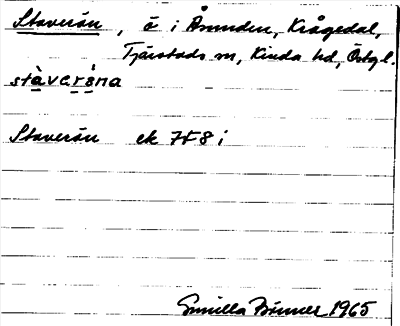 Staverön, ö i Åsunden, Krågedal,
Tjärstads sn, Kinda hd, Östgl.
stàveròna
Staverön ek 7F8i
Gunilla Börner 1965